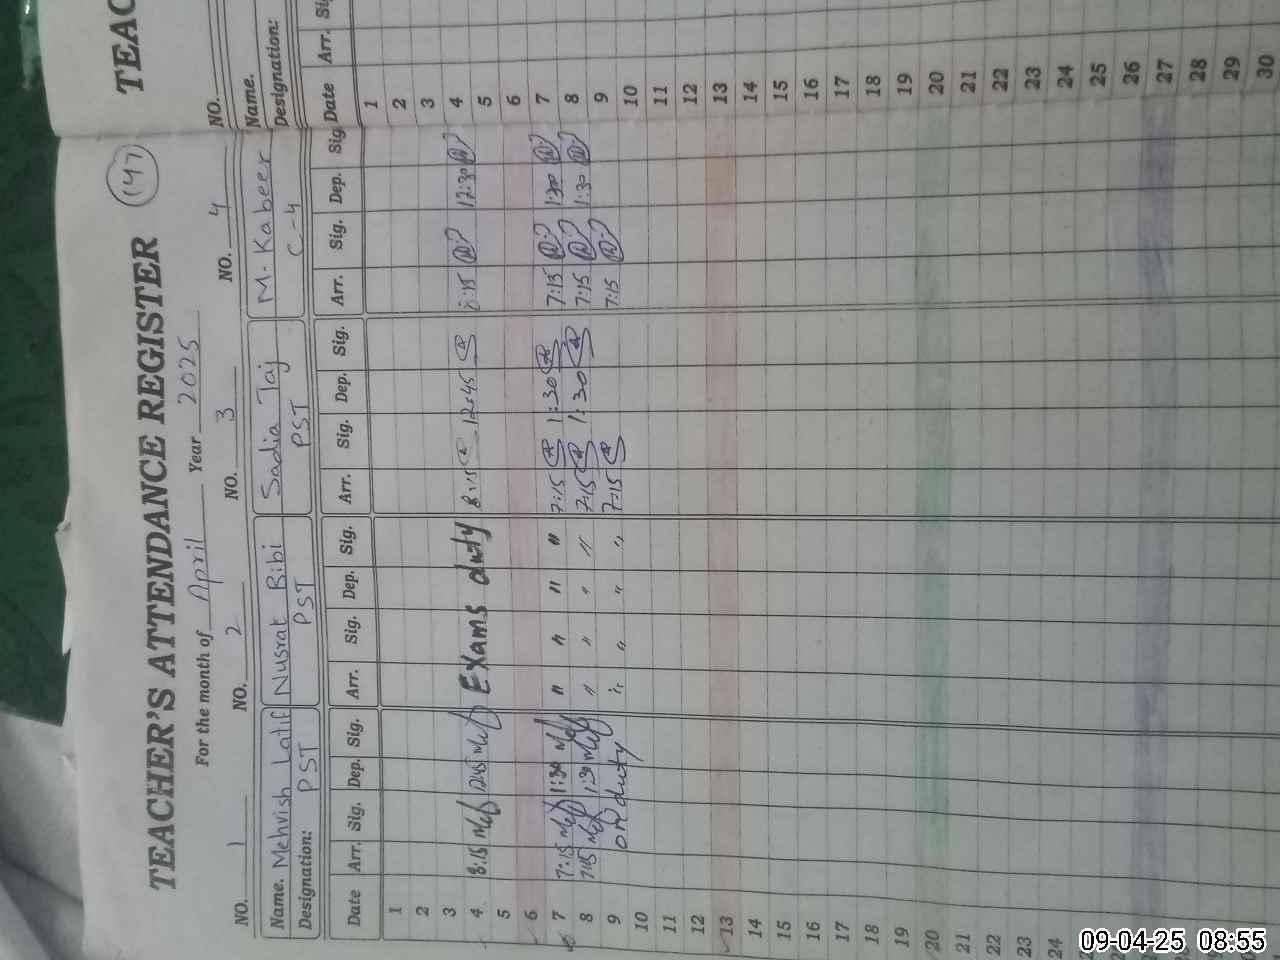 TEACHER'S ATTENDANCE REGISTER (147)
For the month of April Year 2025
NO. 1 NO. 2 NO. 3 NO. 4
Name. Mehvish Latif Nusrat Bibi Sadia Taj M. Kabeer
Designation: PST PST PST C-4
Date Arr. Sig. Dep. Sig. Arr. Sig. Dep. Sig. Arr. Sig. Dep. Sig. Arr. Sig. Dep. Sig.
1
2
3
4 8:15 12:45 Exams duty 8:15 12:45 8:15 12:30
5
6
7 7:15 1:30 " " " " 7:15 1:30 7:15 1:30
8 7:15 1:30 " " " " 7:15 1:30 7:15 1:30
9 on duty " " " " 7:15 7:15
10
11
12
13
14
15
16
17
18
19
20
21
22
23
24
TEAC
NO.
Name.
Designation:
Date Arr. Si
1
2
3
4
5
6
7
8
9
10
11
12
13
14
15
16
17
18
19
20
21
22
23
24
25
26
27
28
29
30
09-04-25 08:55